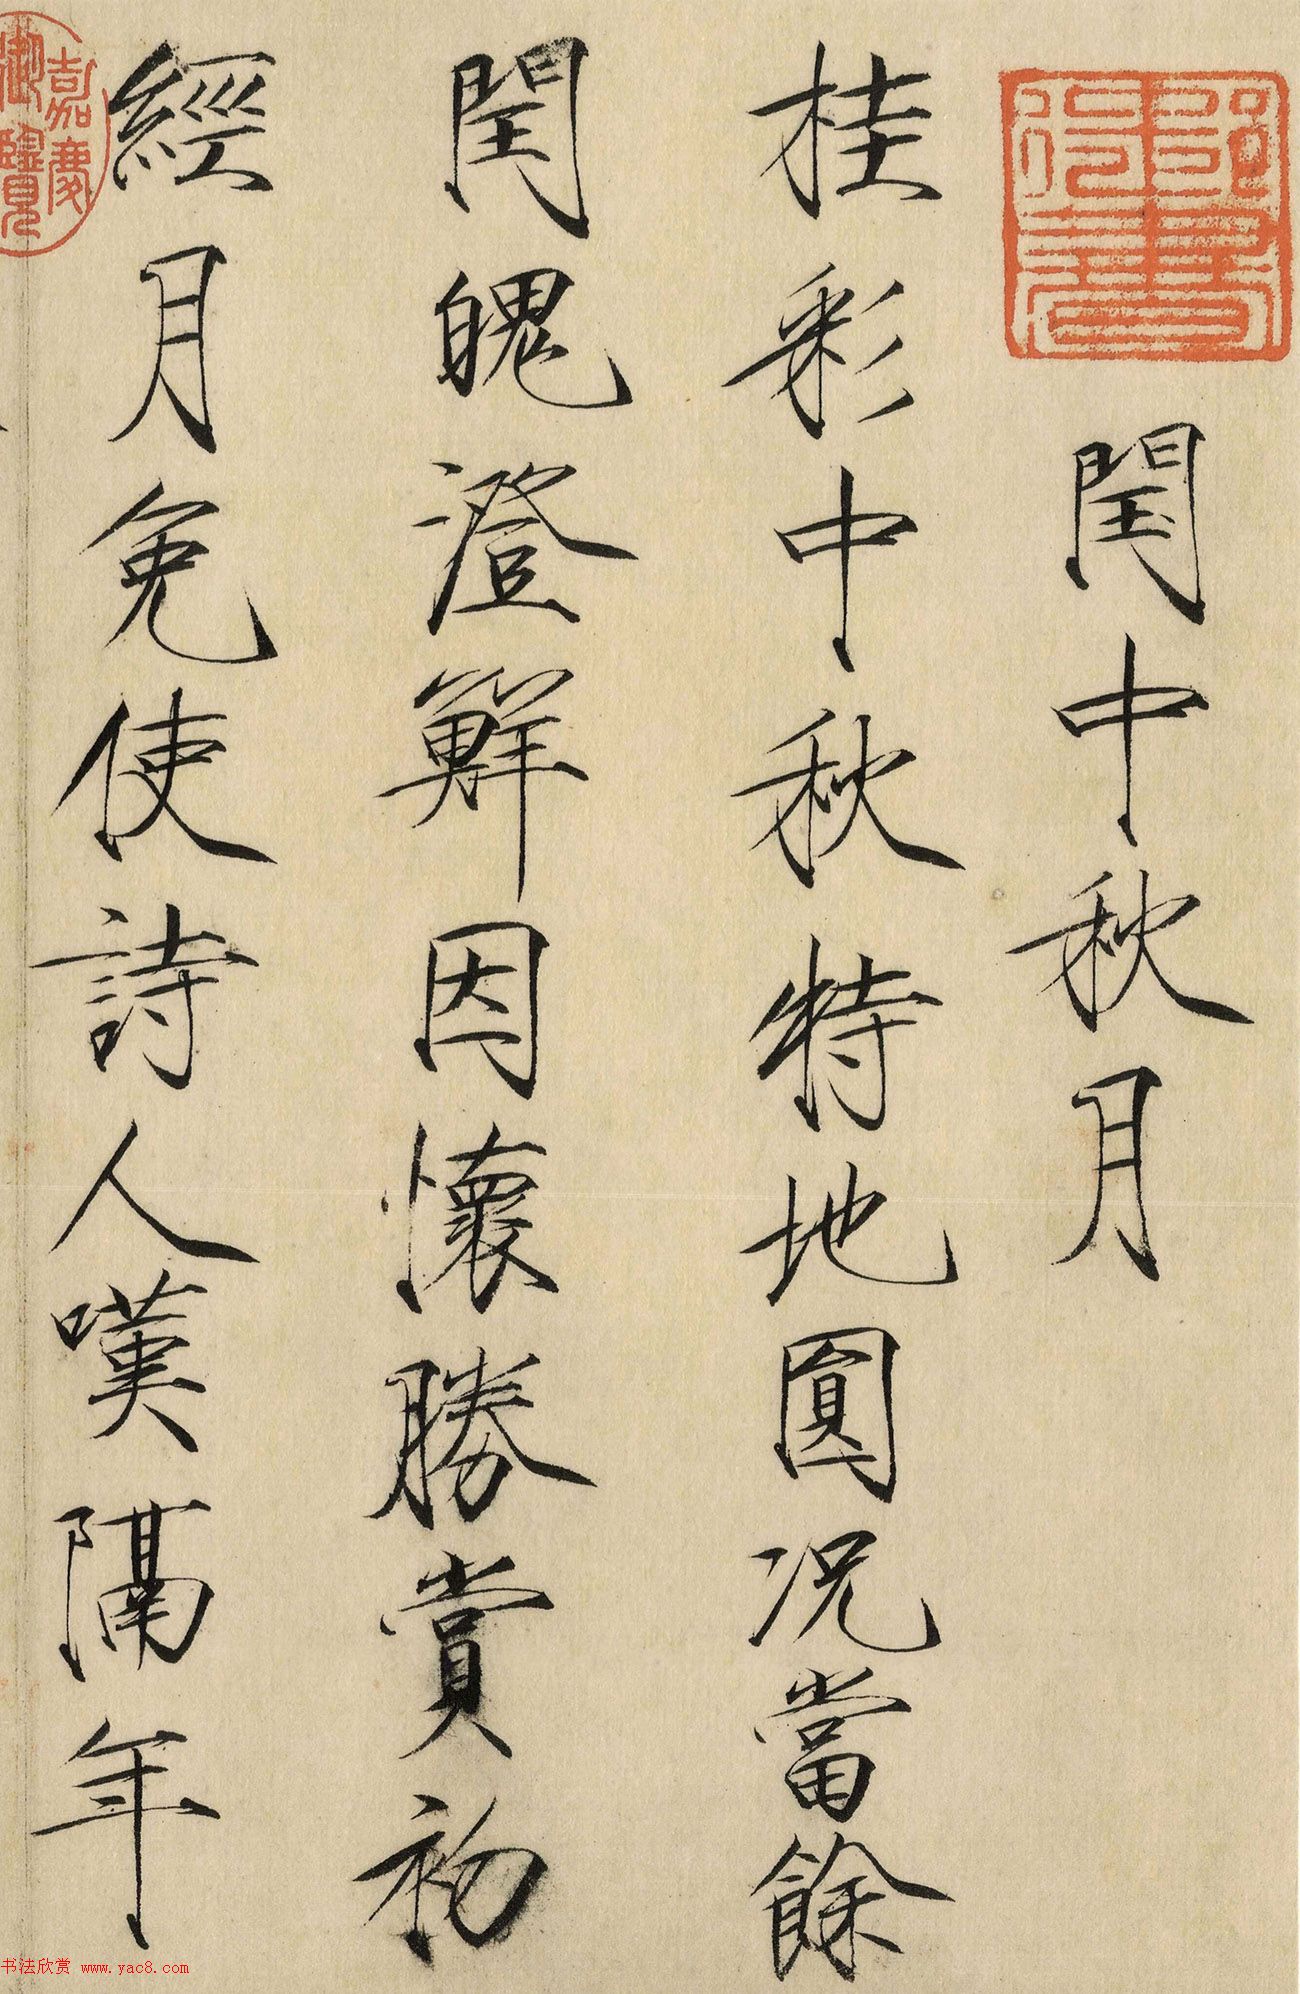 閏中秋月
桂彩中秋特地圓况當餘
閏魄澄鮮因懷勝賞初
經月免使詩人嘆隔年
御書
嘉慶御覽
书法欣赏 www.yac8.com